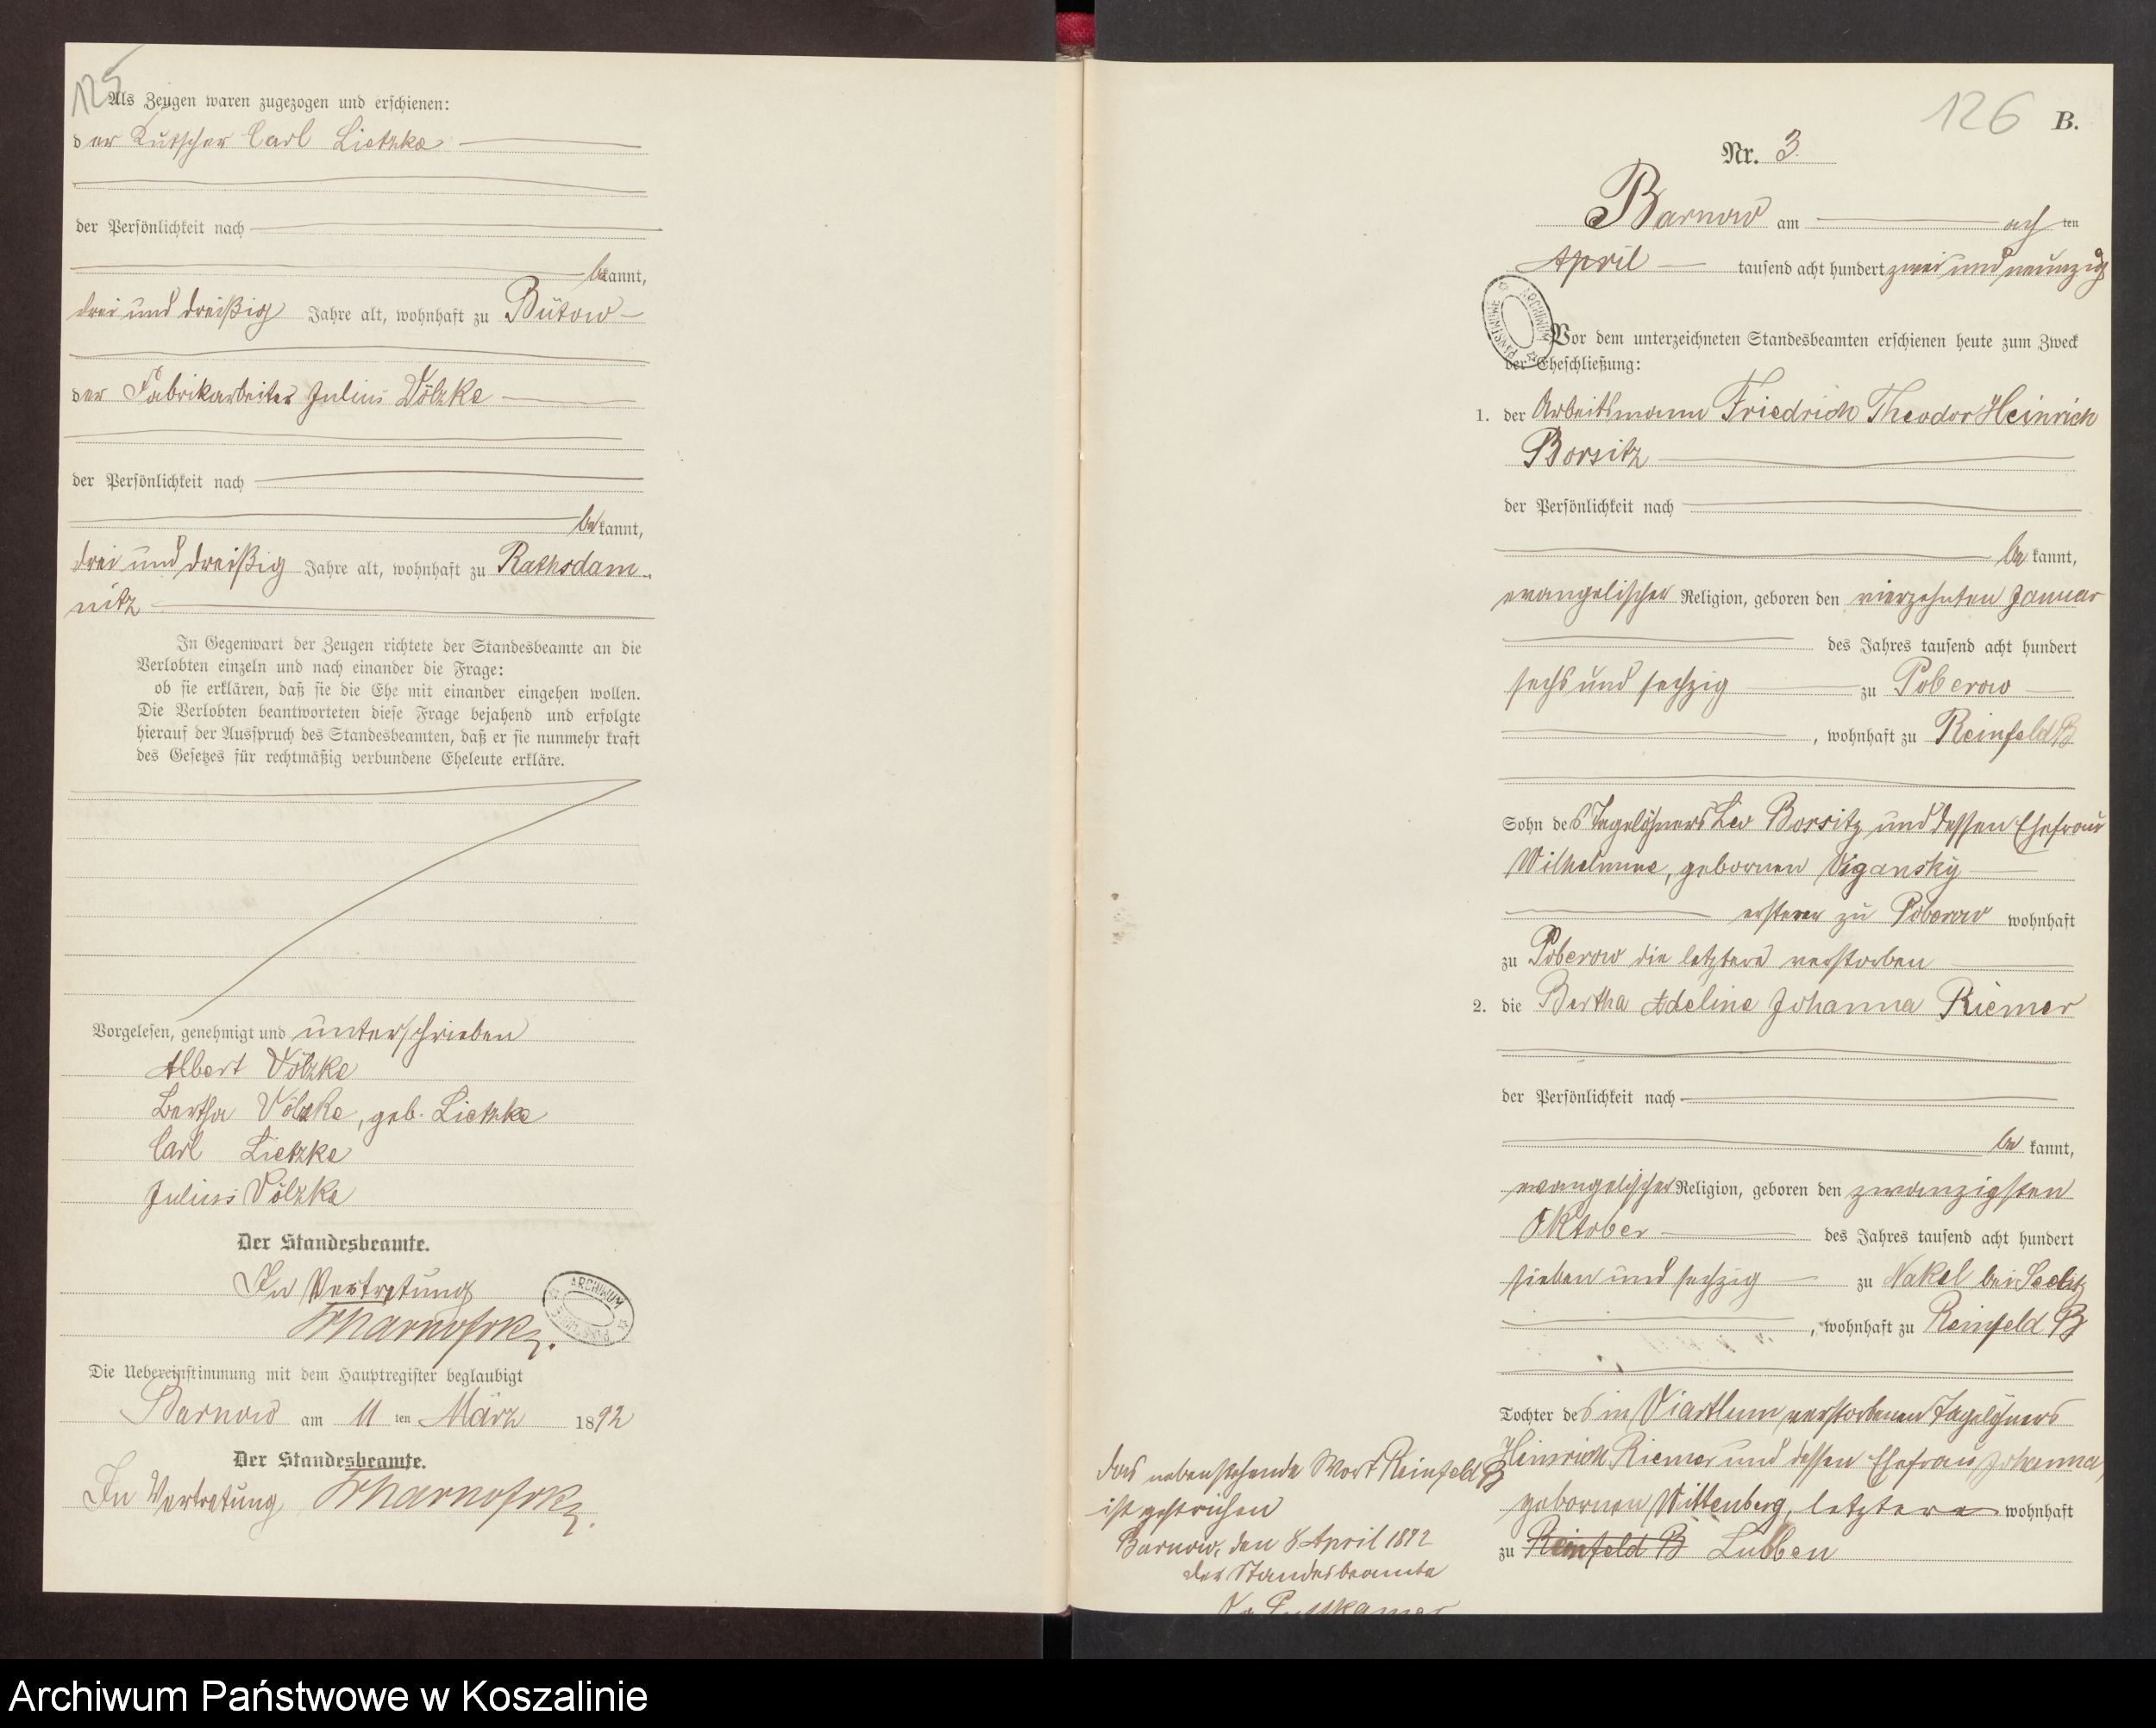 125
Als Zeugen waren zugezogen und erschienen:
der Kutscher Carl Lietzke
der Persönlichkeit nach
bekannt,
drei und dreißig Jahre alt, wohnhaft zu Bütow
der Fabrikarbeiter Julius Völzke
der Persönlichkeit nach
bekannt,
drei und dreißig Jahre alt, wohnhaft zu Rathsdam-
nitz
In Gegenwart der Zeugen richtete der Standesbeamte an die
Verlobten einzeln und nach einander die Frage:
ob sie erklären, daß sie die Ehe mit einander eingehen wollen.
Die Verlobten beantworteten diese Frage bejahend und erfolgte
hierauf der Ausspruch des Standesbeamten, daß er sie nunmehr kraft
des Gesetzes für rechtmäßig verbundene Eheleute erkläre.
Vorgelesen, genehmigt und unterschrieben
Albert Völzke
Bertha Völzke, geb. Lietzke
Carl Lietzke
Julius Völzke
Der Standesbeamte.
In Vertretung
ARCHIWUM
Die Uebereinstimmung mit dem Hauptregister beglaubigt
Barnow am 11 ten März 1892
Der Standesbeamte.
In Vertretung
126 B.
Nr. 3.
Barnow am achten
April tausend acht hundert zwei und neunzig
ARCHIWUM
Vor dem unterzeichneten Standesbeamten erschienen heute zum Zweck
der Eheschließung:
1. der Arbeitsmann Friedrich Theodor Heinrich
Borsitz
der Persönlichkeit nach
be kannt,
evangelischer Religion, geboren den vierzehnten Januar
des Jahres tausend acht hundert
sechs und sechzig zu Poberow
, wohnhaft zu Reinfeld B
Sohn des Tagelöhners Leo Borsitz und dessen Ehefrau
Wilhelmine, gebornen Vigansky
ersterer zu Poberow wohnhaft
zu Poberow die letztere verstorben
2. die Bertha Adeline Johanna Riemer
der Persönlichkeit nach
be kannt,
evangelischer Religion, geboren den zwanzigsten
Oktober des Jahres tausend acht hundert
sieben und sechzig zu Nakel bei
, wohnhaft zu Reinfeld B
Tochter des in Viartlum verstorbenen Tagelöhners
Heinrich Riemer und dessen Ehefrau Johanna,
gebornen Wittenberg, letztere wohnhaft
zu Reinfeld B Lubben
das nebenstehende Wort Reinfeld B
ist gestrichen
Barnow, den 8 April 1892
der Standesbeamte
Puttkamer
Archiwum Państwowe w Koszalinie